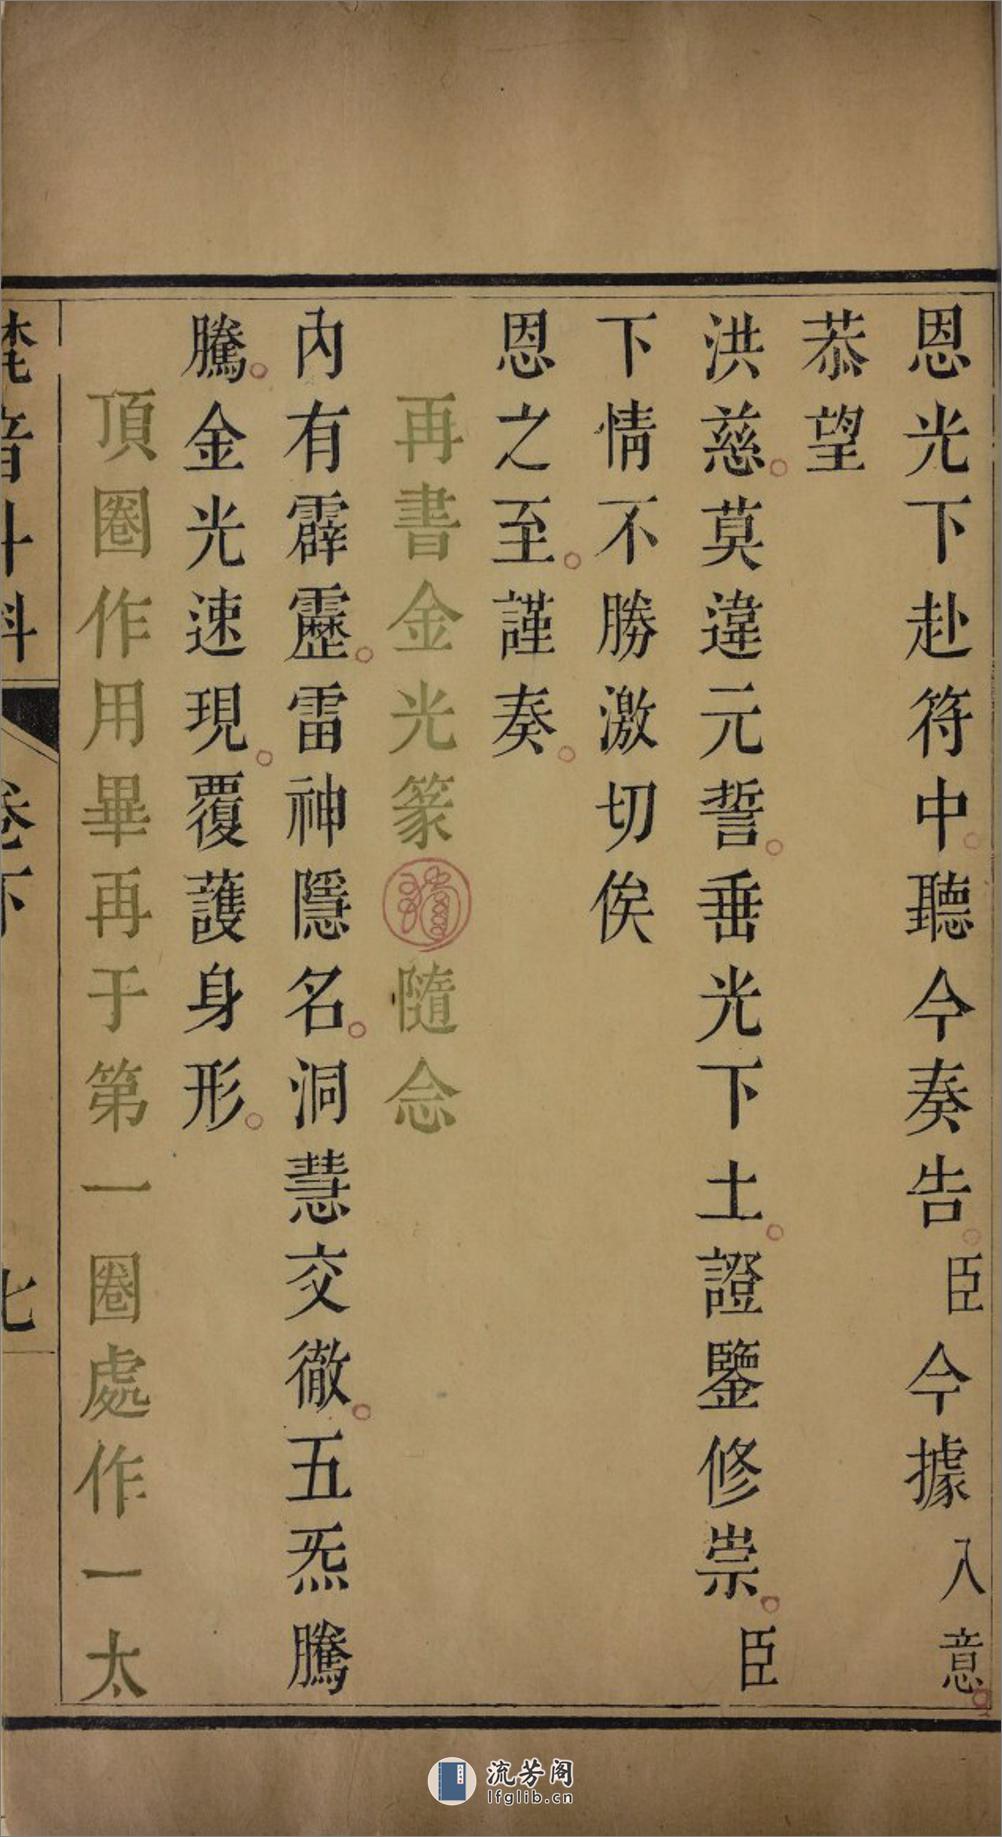 恩光下赴符中。聽今奏告。臣今據入意。
恭望
洪慈。莫違元誓。垂光下土。證鑒修崇。臣
下情不勝激切俟
恩之至。謹奏。
再書金光篆隨念
內有霹靂。雷神隱名。洞慧交徹。五炁騰
騰。金光速現。覆護身形。
頂圈作用畢再于第一圈處作一太
梵音斗科
卷下
流芳阁
lfglib.cn